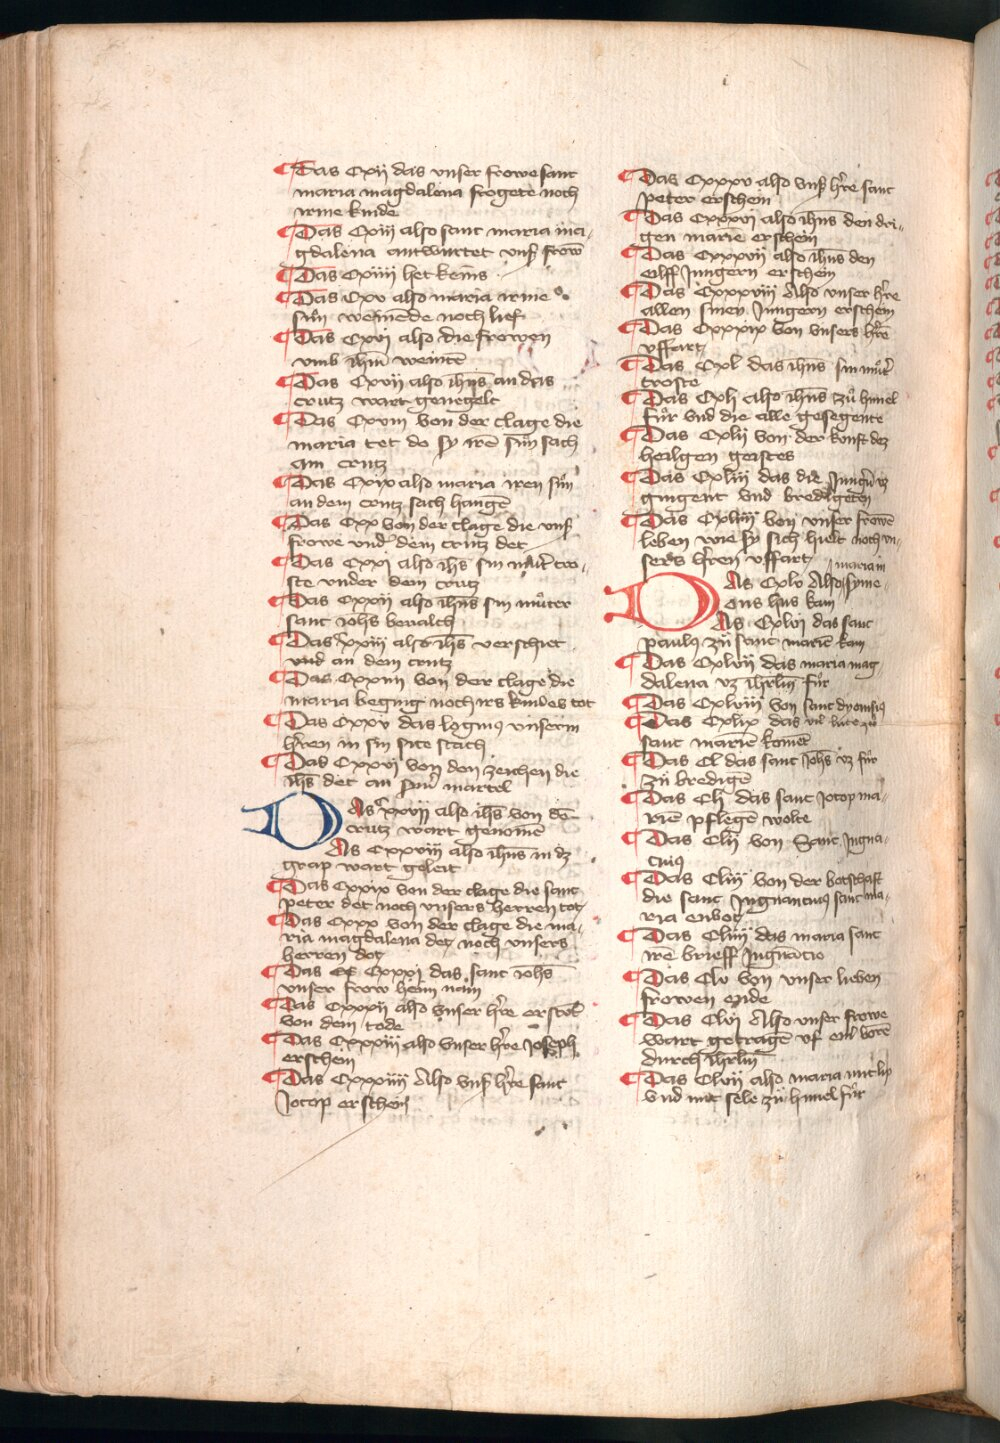 Das Cxij das vnser frowe sant
maria magdalena frogete noch
irme kinde
Das Cxiij also sant maria ma-
gdalena antwurtet vnser frow
Das Cxiiij het keins
Das Cxv also maria irme
sůn weinēde noch lief
Das Cxvi also die frowen
vmb ihm̄ weintē
Das Cxvij also ihūs an das
crutz wart genegelt
Das Cxviij von der clage die
maria tet do sy irē sůn sach
am crutz
Das Cxix also maria iren sůn
an dem crutz sach hangē
Das Cxx von der clage die vnß
frowe vnd dem crutz det
Das Cxxi also ihs sin můt' tro-
ste vnder dem crutz
Das Cxxij also ihūs sin můter
sant iohs bevalch
Das Cxxiij also ihs verschiet
vnd an dem crutz
Das Cxxiiij von der clage die
maria beging noch irs kindes tot
Das Cxxv das loginꝰ vnserm
h'ren in sin site stach
Das Cxxvi von den zeichen die
ihs det an sin' martel
DAs Cxxvij also ihs von dē
crutz wart genomē
DAs Cxxviij also ihūs in dz
grap wart geleit
Das Cxxix von der clage die sant
peter det noch vnsers herren tot
Das Cxxx von der clage die ma-
ria magdalena det noch vnsers
herren dot
Das Cxxxi das sant iohs
vnser frow heim nam
Das Cxxxij also vnser h're erstůt
von dem tode
Das Cxxxiij also vnser h're Joseph
erschein
Das Cxxxiiij Also vnß h're sant
Jocop erschein
Das Cxxxv also vnß h're sant
peter erschein
Das Cxxxvi also ihūs den dri-
gen marie erschein
Das Cxxxvij also ihūs den
eilff Jungern erschein
Das Cxxxviij Also vnser h're
allen sinen Jungern erschein
Das Cxxxix von vnsers h're
vffart
Das Cxl das ihūs sin můt'
troste
Das Cxli also ihūs zů himel
fůr vnd die alle gesegente
Das Cxlij von der konft dez
heilgen geistes
Das Cxliij das die Jung'n vz
gingent vnd bredigetēn
Das Cxliiij von vnser frowē
leben wie sy sich hielt noch vn-
sers h'ren vffart
DAs Cxlv Also syme- maria in
ons hus kam
DAs Cxlvi das sant
paulꝰ zů sant marie kam
Das Cxlvij das maria mag
dalena vz ihrlm̄ fůr
Das Cxlviij von sant dyonisiꝰ
Das Cxlix das vil lute zů
sant marie komēt
Das Cl das sant iohs vz fůr
zů bredigē
Das Cli das sant Jocop ma-
riē pflegē wolte
Das Clij von Sant Ingna-
ciuꝰ
Das Cliij von der botschaft
die sant Ingnanciuꝰ sant ma-
ria enbot
Das Cliiij das maria sant
irē brieff Ingnācio
Das Clv von vnser lieben
frowen ende
Das Clvi Also vnser frowe
wart getragē vf ein' boren
durch ihrlm̄
Das Clvij also maria mit lip
vnd mit sele zů himel fůr